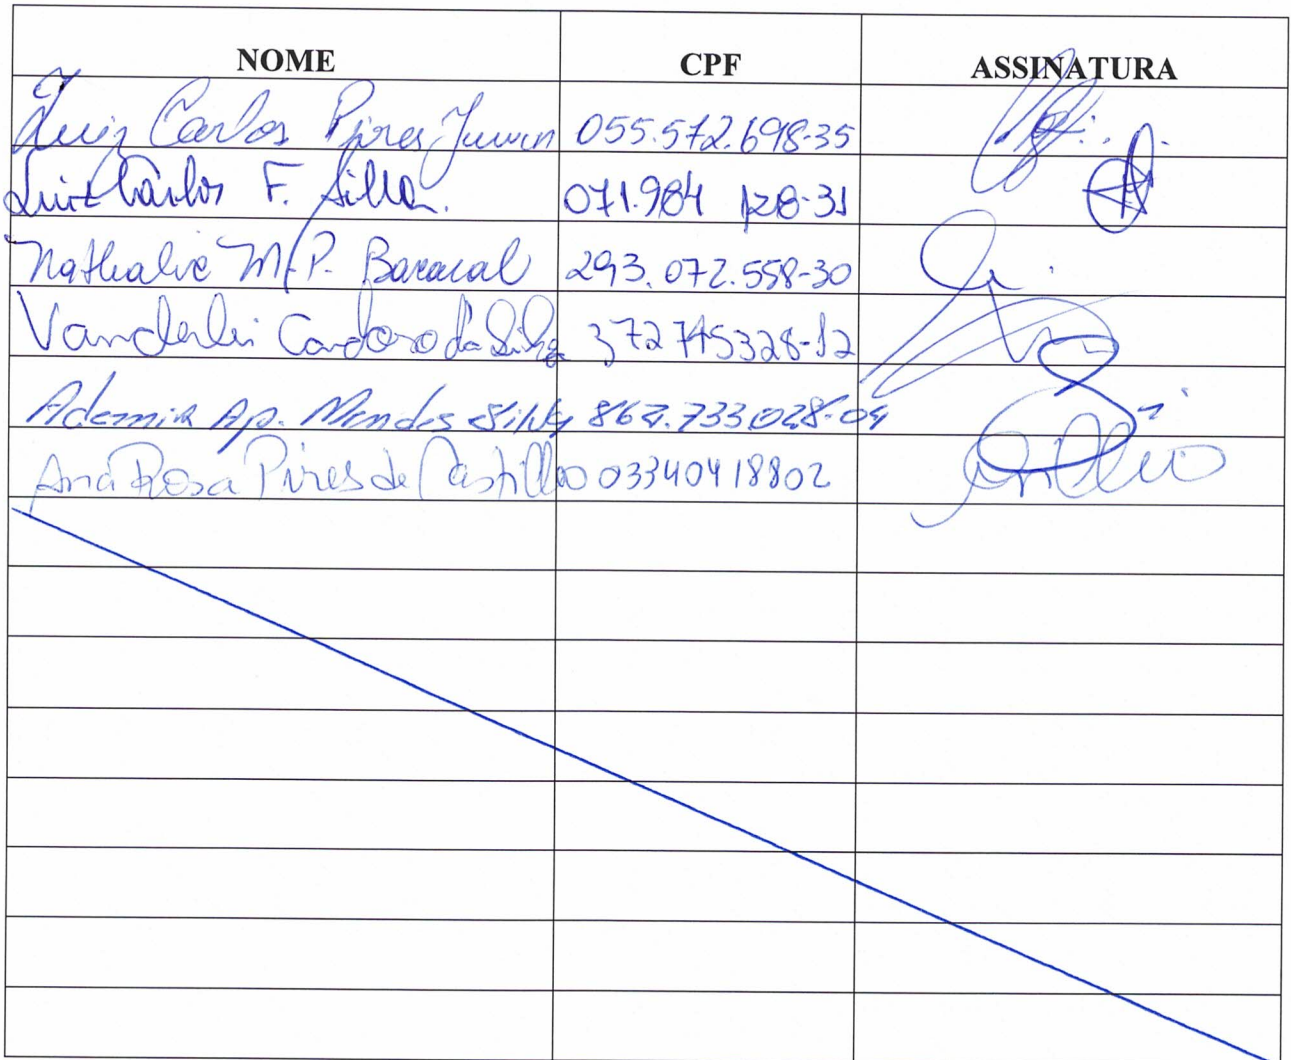 NOME CPF ASSINATURA
Luiz Carlos Pires Junior 055.572.698-35
Luiz Carlos F. Silva. 071.984 128-31
Nathalie M.P. Baracal 293.072.558-30
Vanderlei Cardoso da Silva 372745328-12
Ademir Ap. Mendes Silva 867.733.028-04
Ana Rosa Pires de Castilho 03340418802